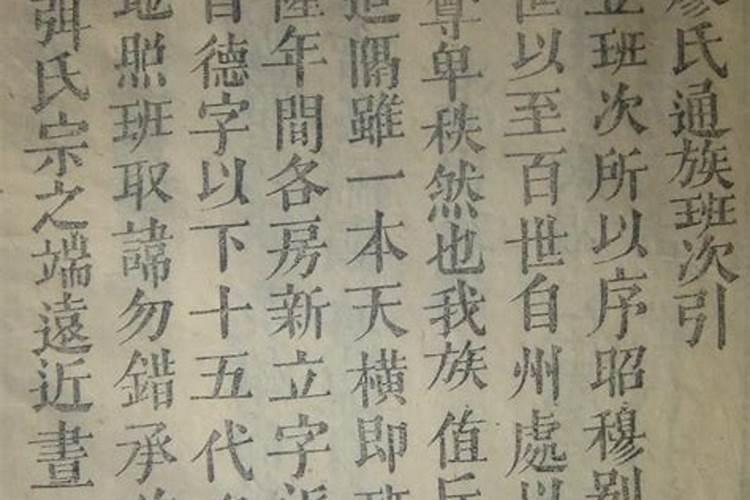 廖氏通族班次引
立班次所以序昭穆別
世以至百世自州處以
尊卑秩然也我族值兵
隔雖一本天橫即
隆年間各房新立字派
德字以下十五代
地照班取諱勿錯承
弭氏宗之端遠近晝